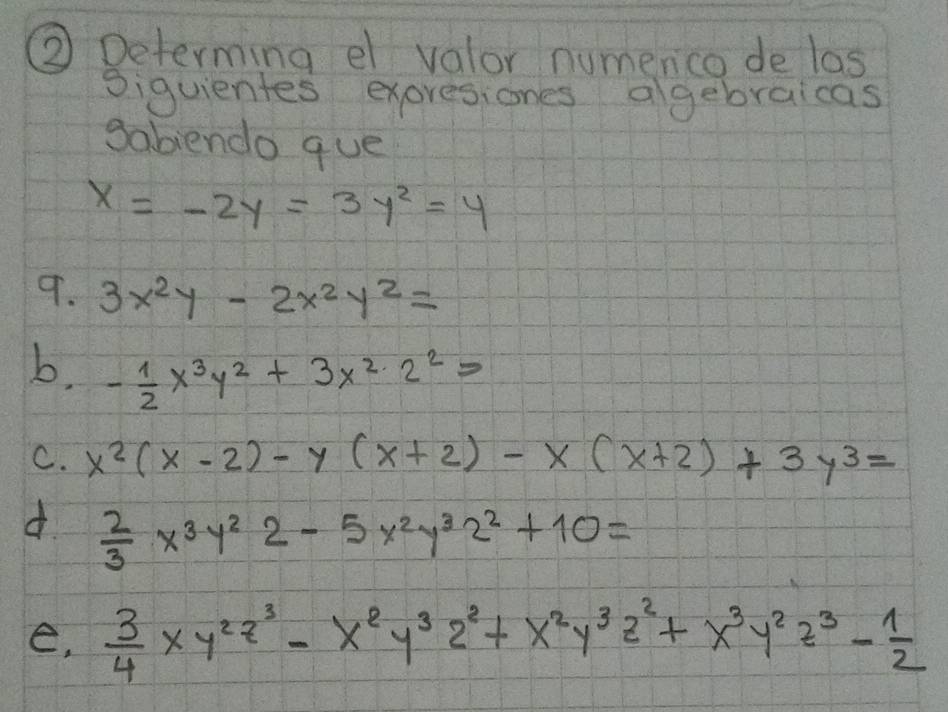 ② Determina el valor numerico de las
Siguientes expresiones algebraicas
Sabiendo que
x = -2y = 3y² = 4
a. 3x²y - 2x²y² =
b. -1/2 x³y² + 3x² · 2² =
c. x²(x - 2) - y (x + 2) - x (x+2) + 3y³ =
d. 2/3 x³y² 2 - 5x²y³2² + 10 =
e. 3/4 xy²z³ - x²y³2² + x²y³z² + x³y²z³ - 1/2